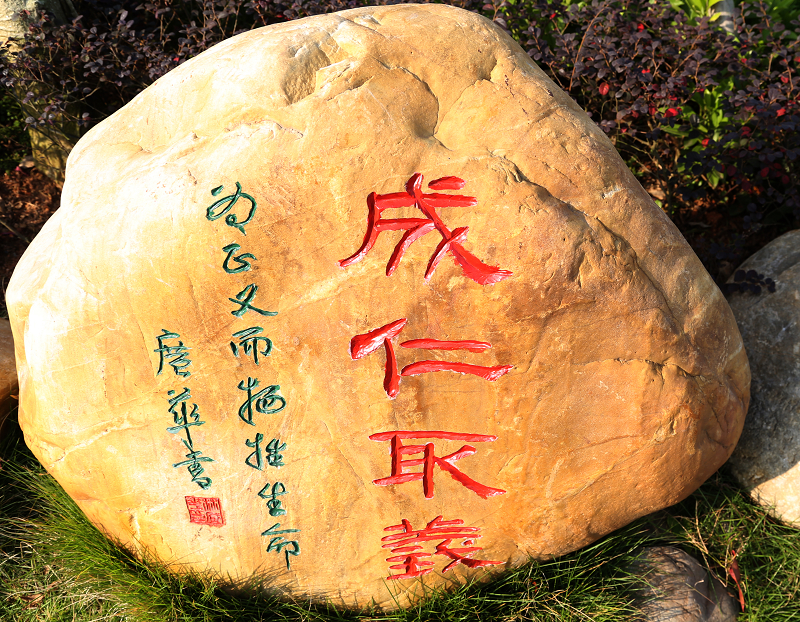 成仁取義
为正义而牺牲生命
唐華書